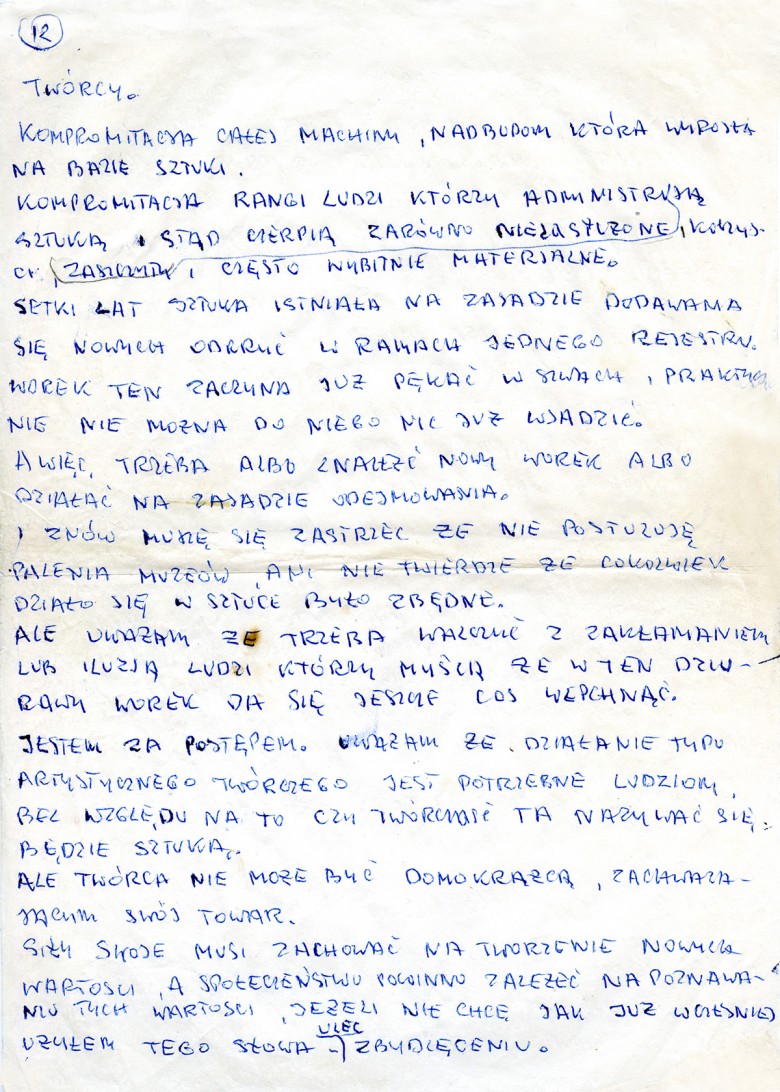 12
TWÓRCY.
KOMPROMITACJA CAŁEJ MACHINY, NADBUDOWY KTÓRA WYROSŁA
NA BAZIE SZTUKI.
KOMPROMITACJA RANGI LUDZI KTÓRZY ADMINISTRUJĄ
SZTUKĄ I STĄD CIERPIĄ ZARÓWNO NIEZASŁUŻONE, KORZYŚ-
CI, ZASZCZYTY I CZĘSTO WYBITNIE MATERJALNE.
SETKI LAT SZTUKA ISTNIAŁA NA ZASADZIE DODAWANIA
SIĘ NOWYCH ODKRYĆ W RAMACH JEDNEGO REJESTRU.
WOREK TEN ZACZYNA JUŻ PĘKAĆ W SZWACH, PRAKTYCZ
NIE NIE MOŻNA DO NIEGO NIC JUŻ WSADZIĆ.
A WIĘC, TRZEBA ALBO ZNALEŹĆ NOWY WOREK ALBO
DZIAŁAĆ NA ZASADZIE ODEJMOWANIA.
I ZNÓW MUSZĘ SIĘ ZASTRZEC ŻE NIE POSTULUJĘ
PALENIA MUZEÓW, ANI NIE TWIERDZE ŻE COKOLWIEK
DZIAŁO SIĘ W SZTUCE BYŁO ZBĘDNE.
ALE UWAŻAM ŻE TRZEBA WALCZYĆ Z ZAKŁAMANIEM
LUB ILUZJĄ LUDZI KTÓRZY MYŚLĄ ŻE W TEN DZIU-
RAWY WOREK DA SIĘ JESZCZE COŚ WEPCHNĄĆ.
JESTEM ZA POSTĘPEM. UWAŻAM ŻE DZIAŁANIE TYPU
ARTYSTYCZNEGO TWÓRCZEGO JEST POTRZEBNE LUDZIOM,
BEZ WZGLĘDU NA TO CZY TWÓRCZOŚĆ TA NAZYWAĆ SIĘ
BĘDZIE SZTUKĄ.
ALE TWÓRCA NIE MOŻE BYĆ DOMOKRĄŻCĄ, ZACHWALA-
JĄCYM SWÓJ TOWAR.
SIŁY SWOJE MUSI ZACHOWAĆ NA TWORZENIE NOWYCH
WARTOŚCI, A SPOŁECZEŃSTWU POWINNO ZALEŻEĆ NA POZNAWA-
NIU TYCH WARTOŚCI, JEŻELI NIE CHCE JAK JUŻ WCZEŚNIEJ
UŻYŁEM TEGO SŁOWA ULEC ZBYDLĘCENIU.